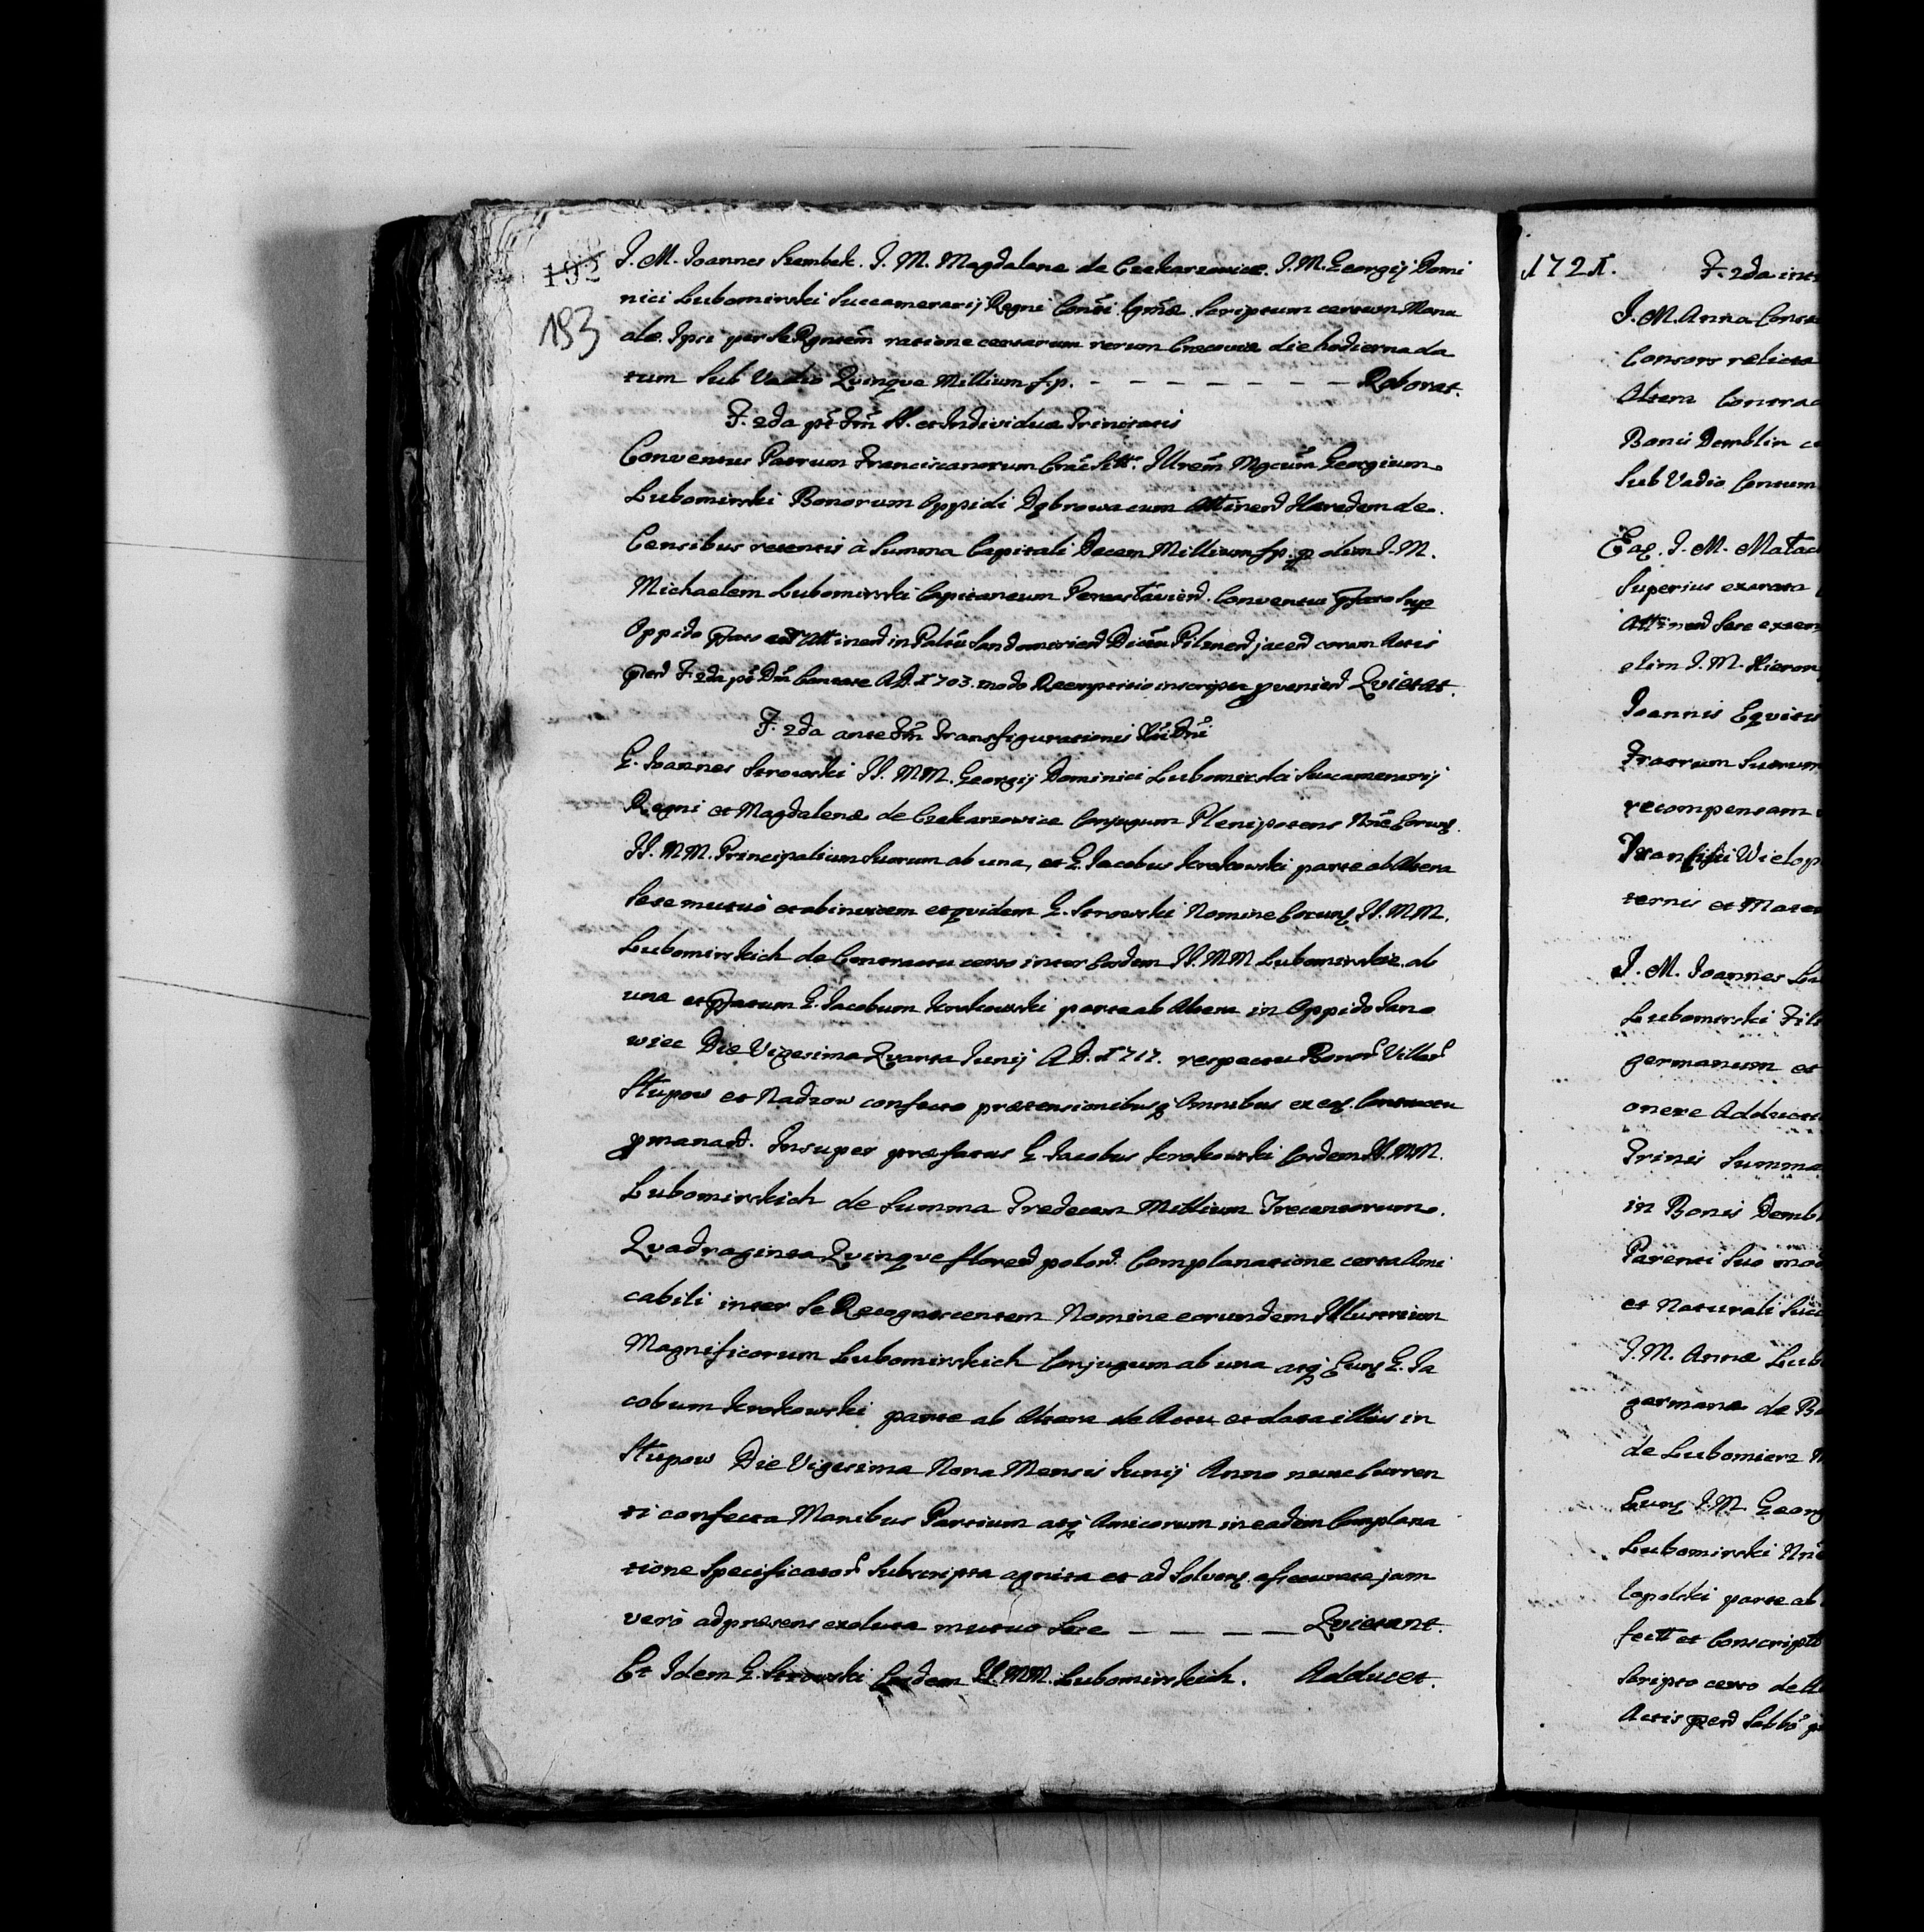 192
193
I. M. Ioannes Szembek. I. M. Magdalenæ de Czekarzowice. I. M. Georgij Domi
nici Lubomirski Succamerarij Regni Consrti Scriptum certum Manu
ale Ipsi per Se Rgntem ratione certarum rerum Cracoviæ die hodierna da
tum Sub Vadio Qvinqve Millium f. p. - - - - - - - - Roborat.
F. 2da pt Fm SS. et Individuæ Trinitatis
Conventus Patrum Franciscanorum Illrem Mgcum Georgium
Lubomirski Bonorum Oppidi Dąbrowa cum Attinen Hæredem de
Censibus retentis à Summa Capitali Decem Millium f. p. p olim I. M.
Michaelem Lubomirski Capitaneum Conventui Sup
Oppido Attinen in Paltu Sandomirien Dictu Pilznen jacen coram Actis
F. 2da pt Dm Cantate A. D. 1703. modo Reemptitio inscripta pvenien Qvietat.
F. 2da ante Fm Transfigurationis Xti Dni
G. Ioannes Strowski II. MM. Georgij Dominici Lubomirski Succamerarij
Regni et Magdalenæ de Czekarzowice Conjugum Plenipotens Nne Eorunq
II. MM. Principalium Suorum ab una, et G. Iacobus Krokowski parte ab Altera
Sese mutuò et abinvicem et qvidem G. Strowski Nomine Eorunq II. MM.
Lubomirskich de Contractu certo inter Eosdem II. MM Lubomirskie ab
una et Pfatum G. Iacobum Krokowski parte ab Altera in Oppido Iano
wiec Die Vigesima Qvarta Iunij A. D. 1717. respectu Bonor Villar
Stupow et Nadzow confecto prætensionibusq Omnibus ex eoq Contractu
pmanan. Insuper præfatus G. Iacobus Krokowski Eosdem II. MM.
Lubomirskich de Summa Tredecem Millium Trecentorum
Qvadraginta Qvinqve floren polon. Complanatione certa Ami
cabili inter Se Recognoscentem Nomine eorundem Illustrium
Magnificorum Lubomirskich Conjugum ab una atq Eunq G. Ia
cobum Krokowski parte ab Altera de Actu et data illius in
Stupow Die Vigesima Nona Mensis Iunij Anno nunc Curren
ti confecta Manibus Partium atq Amicorum in eadem Complana
tione Specificator Subscripta agnita et ad Solvenq jam
verò ad præsens exoluta mutuo Sese - - - - - Qvietant.
Et Idem G. Strowski Eosdem II. MM. Lubomirskich. Adducet.
1721.
F. 2da int
I. M. Anna Const
Consors relicta
Altera Contrac
Bonis Demblin c
Sub Vadio Contum
Eaq. I. M. Matac
Superius exarata
Attinen Sese exten
olim I. M. Hieron
Ioannis Eqvitis
Fratrum Suorum
recompensam
Wielop
ternis et Mater
I. M. Ioannes
Lubomirski Fili
germanum et
onere Adducti
Trinis Summa
in Bonis Demb
Parenti Suo mod
et Naturali Suc
I. M. Annæ Lub
germanæ de B
de Lubomierz
Eunq I. M. Georg
Lubomirski Nne
lopolski parte ab
fectt et Conscript
Scripto certo de
Actis Sabbo p